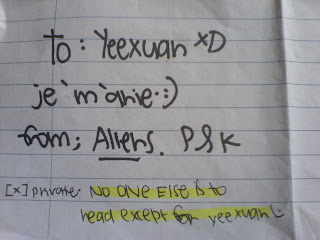 to: Yeexuan xD
je`m`anie·:)
from; Aliens. P&K
[x] private· NO ONE ELSE is to
read except for yeexuan (: